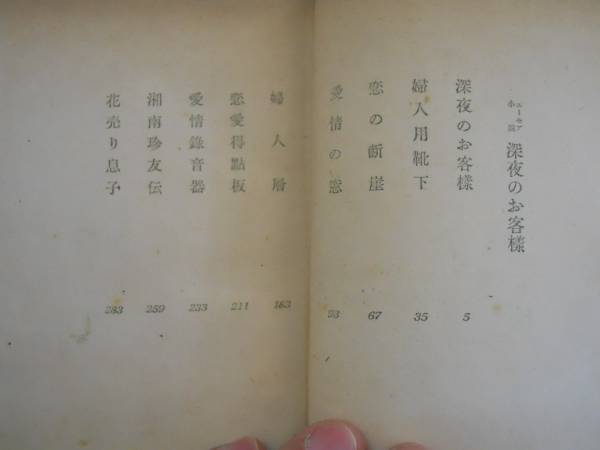 ユーモア小説 深夜のお客様
深夜のお客様 5
婦人用靴下 35
恋の断崖 67
愛情の窓 93
婦人層 163
恋愛得點板 211
愛情錄音器 233
湘南珍友伝 259
花売り息子 283